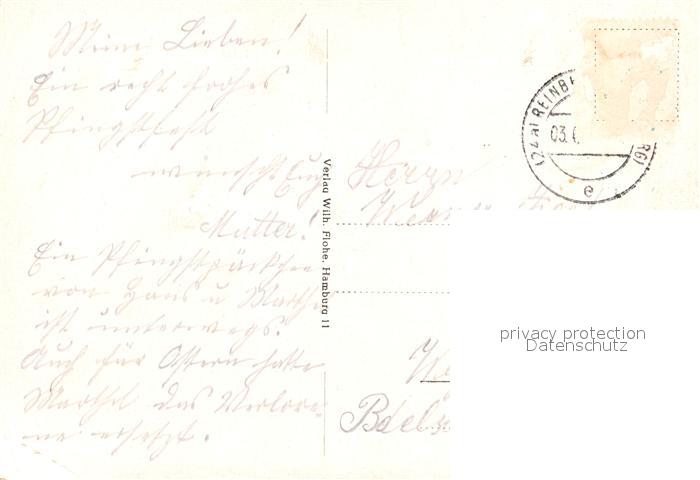 Meine Lieben!
Ein recht frohes
Pfingstfest
wünscht Euch
Mutter!
Ein Pfingstpäckchen
von Hans u. Marthel
ist unterwegs.
Auch für Ostern hatte
Marthel das Verlore-
ne ersetzt.
Verlag Wilh. Flohe, Hamburg 11
Herrn
(24a) REINB
03.
e
privacy protection
Datenschutz